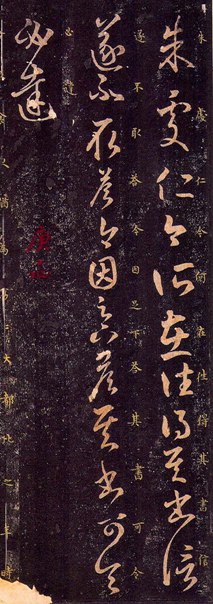 朱處仁今所在往得其書信
朱處仁今所在往得其書信
遂不取答今因足下答其書可令
遂不取答今因足下答其書可令
必達
必達